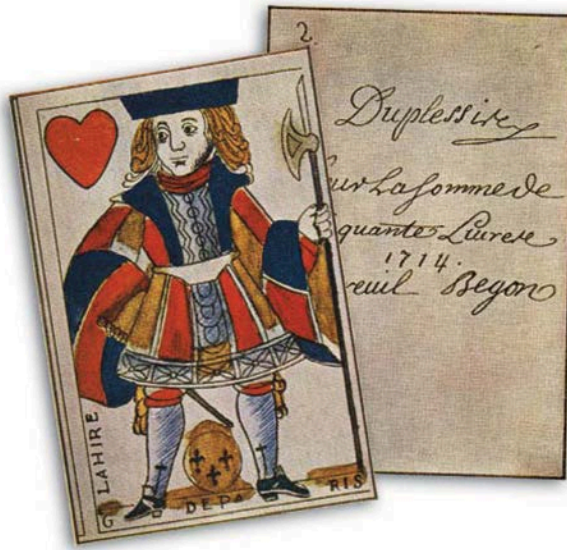 LAHIRE
G
DE PA
RIS
2.
Duplessis
La somme de
quante Livres
1714.
reuil Begon